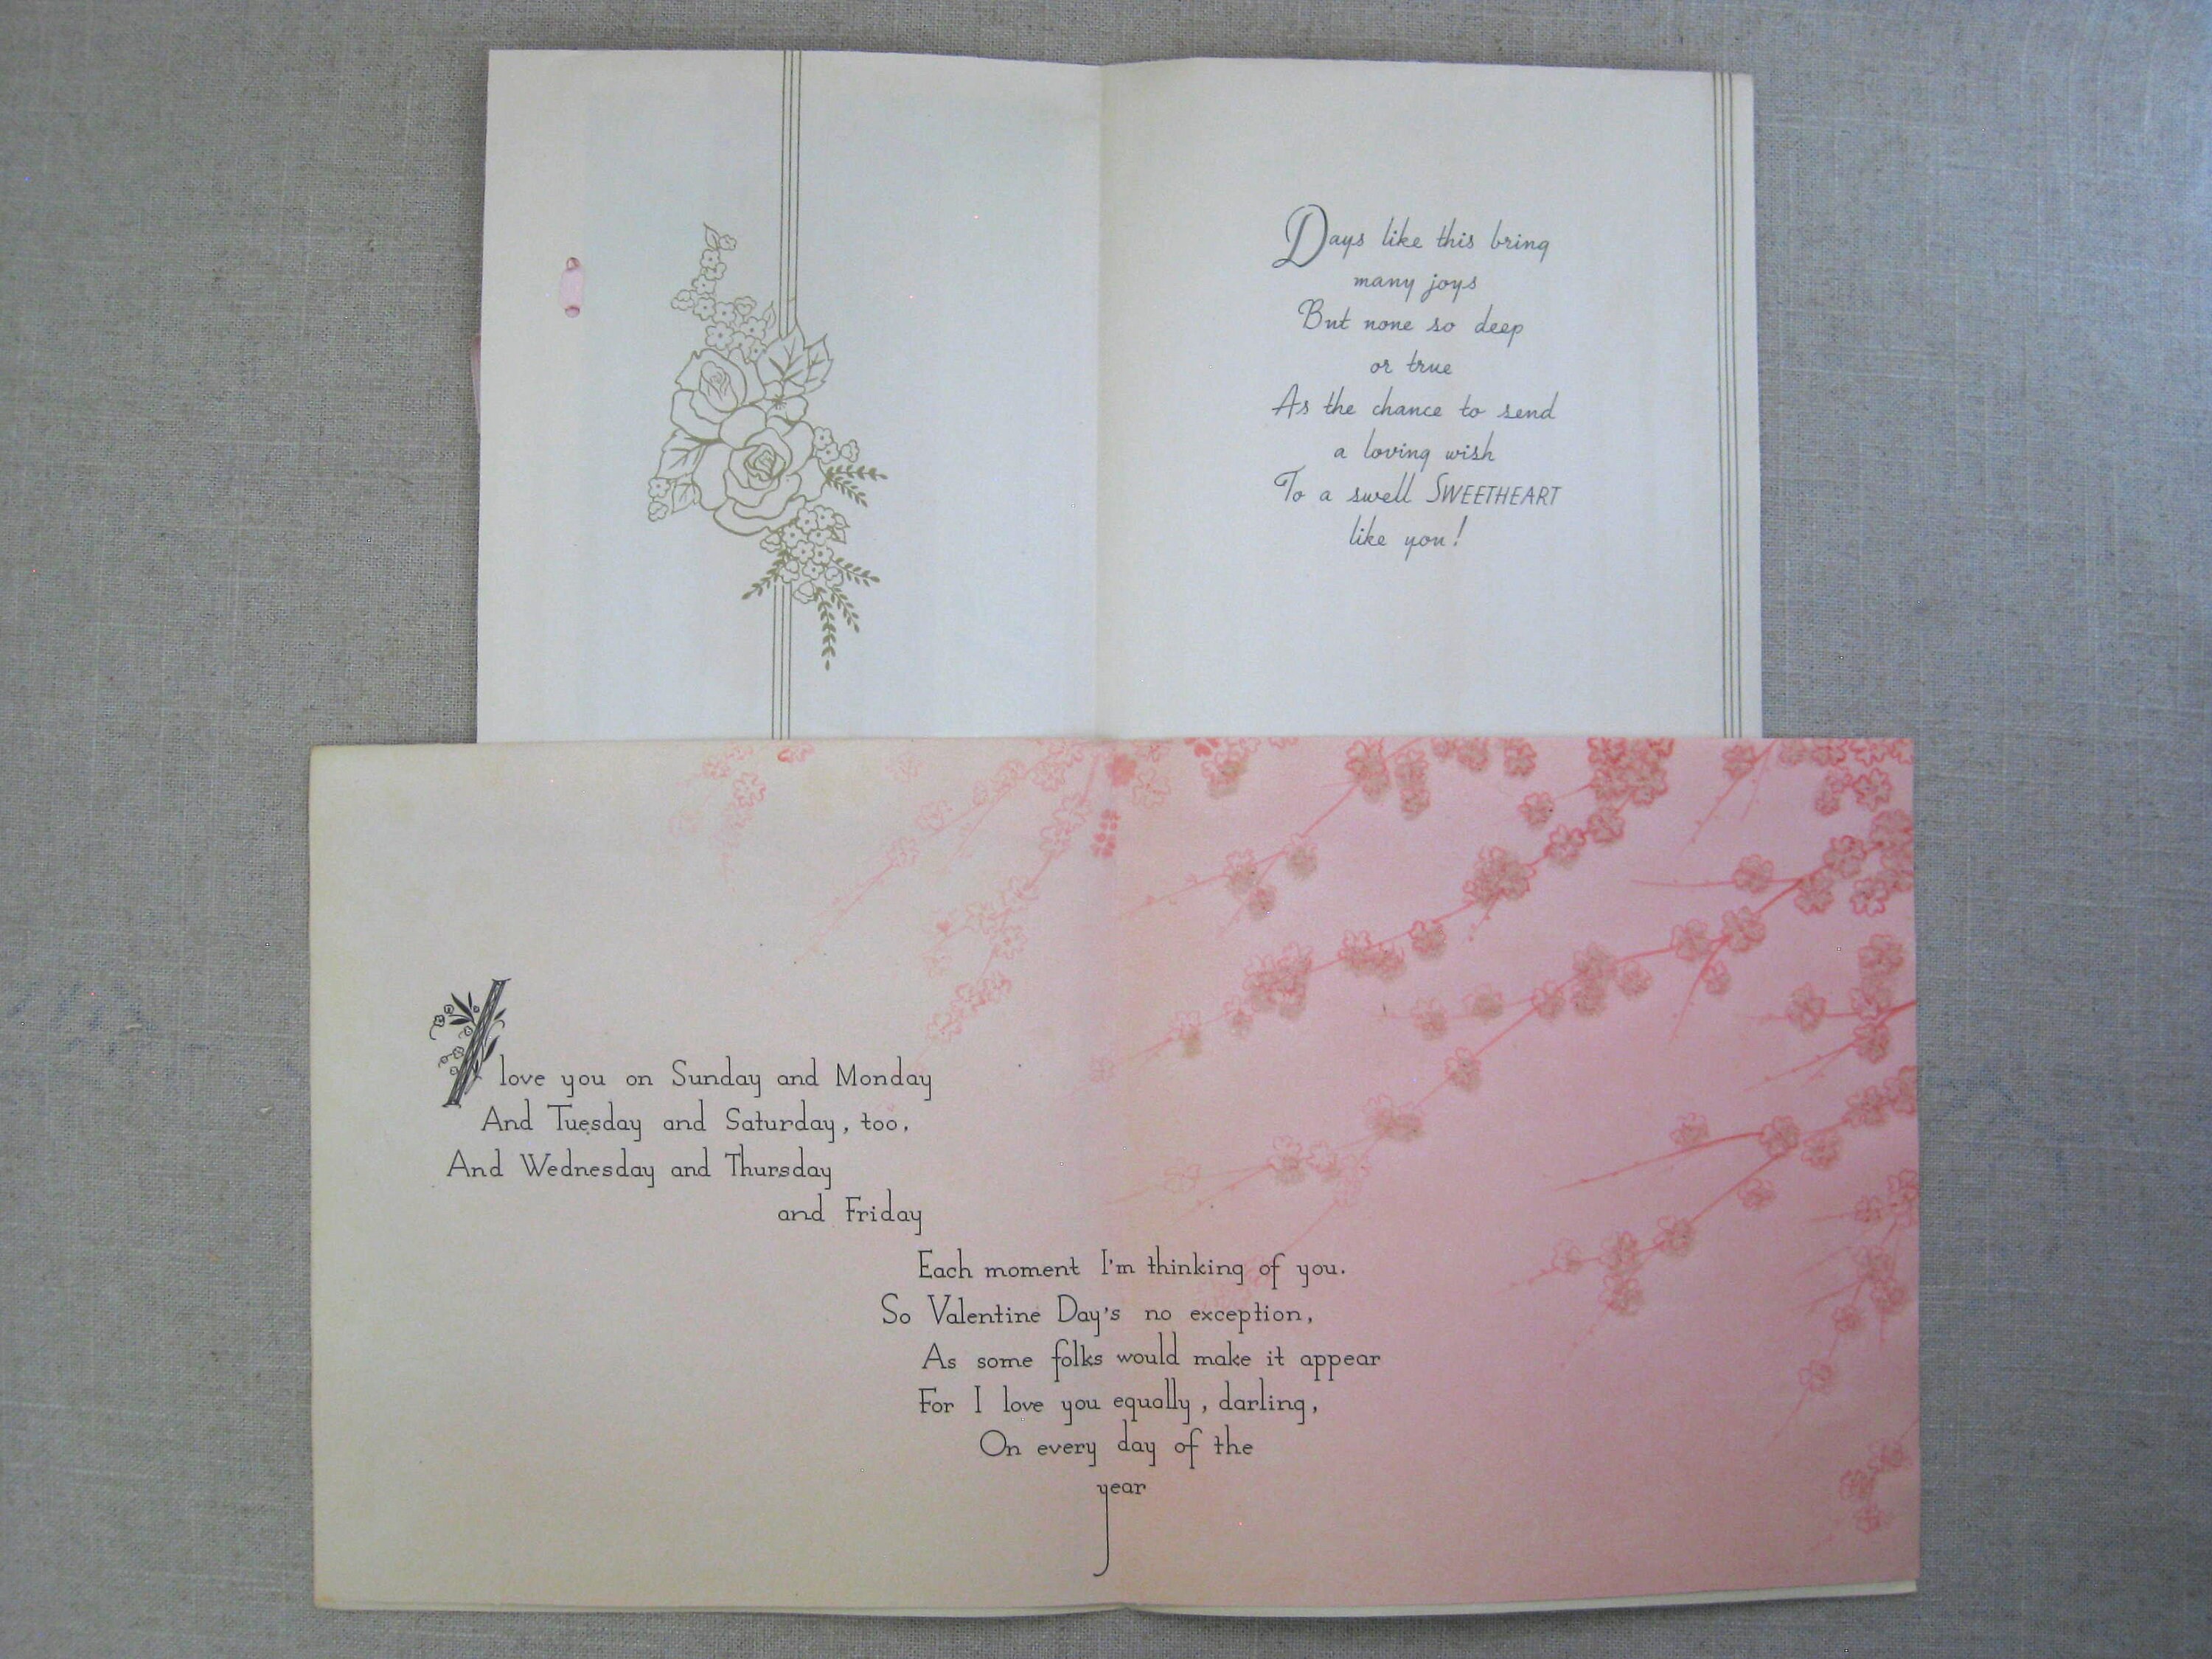 Days like this bring
many joys
But none so deep
or true
As the chance to send
a loving wish
To a swell SWEETHEART
like you!
I love you on Sunday and Monday
And Tuesday and Saturday, too,
And Wednesday and Thursday
and Friday
Each moment I'm thinking of you.
So Valentine Day's no exception,
As some folks would make it appear
For I love you equally, darling,
On every day of the
year